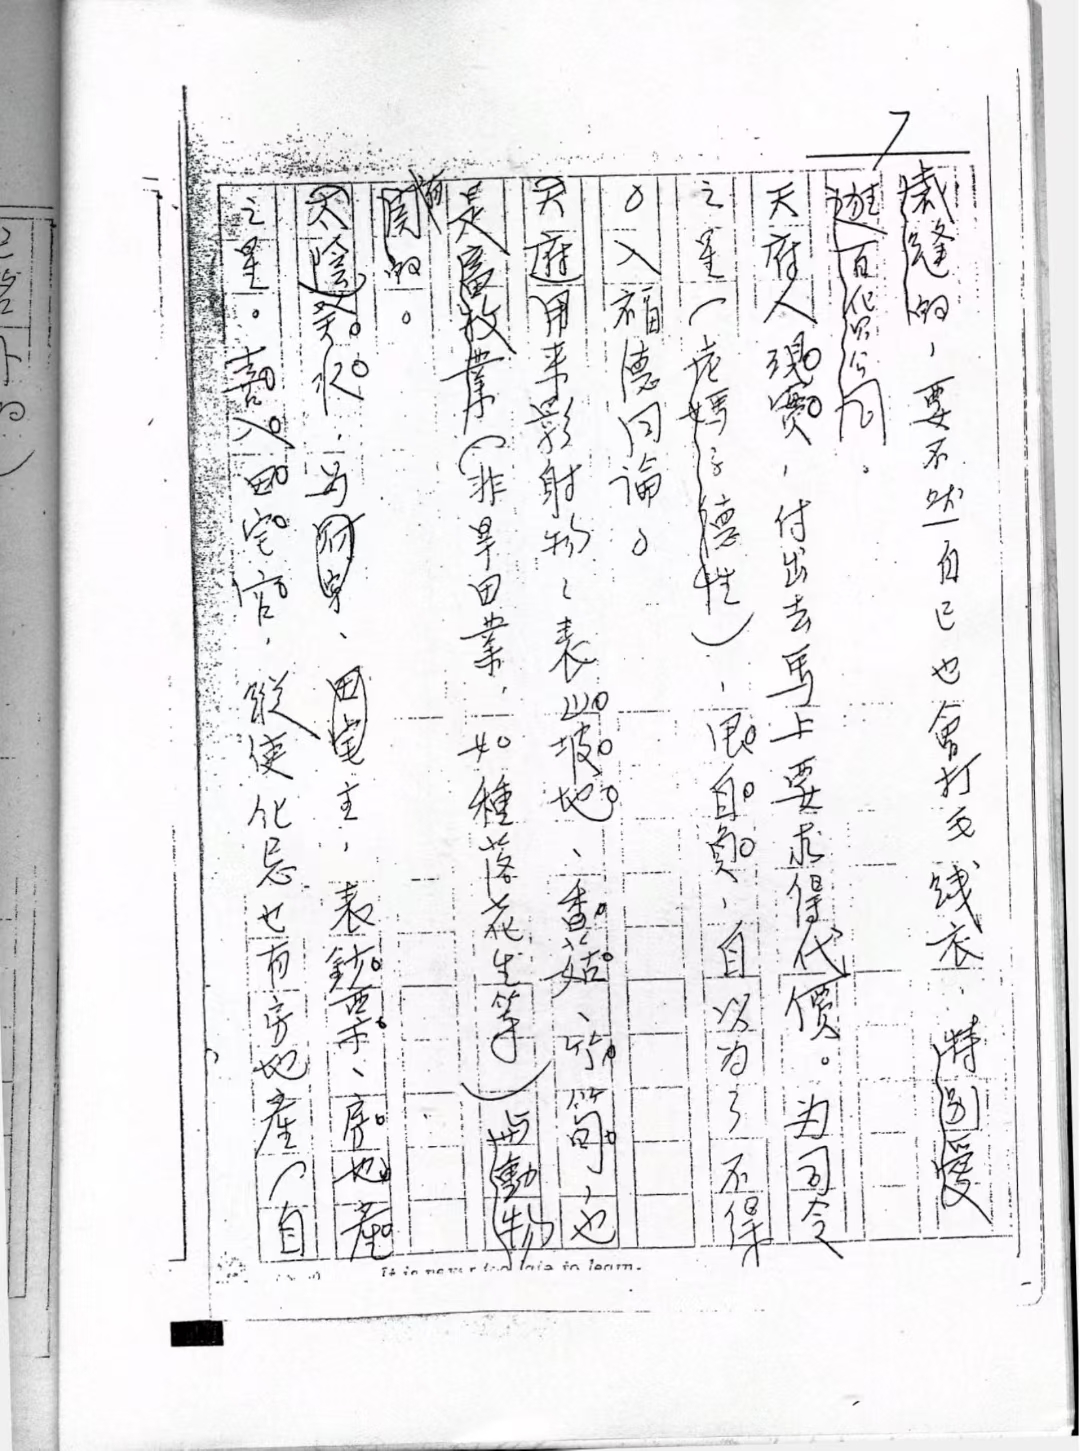 7
裁縫的，要不然自己也會打毛线衣，特别愛
逛百貨公司。
天府人現實，付出去馬上要求得代價。为司令
之星（老媽子德性），很自負，自以为了不得
。入福德同論。
天府用来影射物：表山坡地、香菇、竹筍，也
是畜牧業（非旱田業，如種落花生等）与動物
有関的。
太陰癸水，为财帛、田宅主，表鈔票、房地產
之星。喜入田宅宮，縱使化忌也有房地產（自
It is never too late to learn.